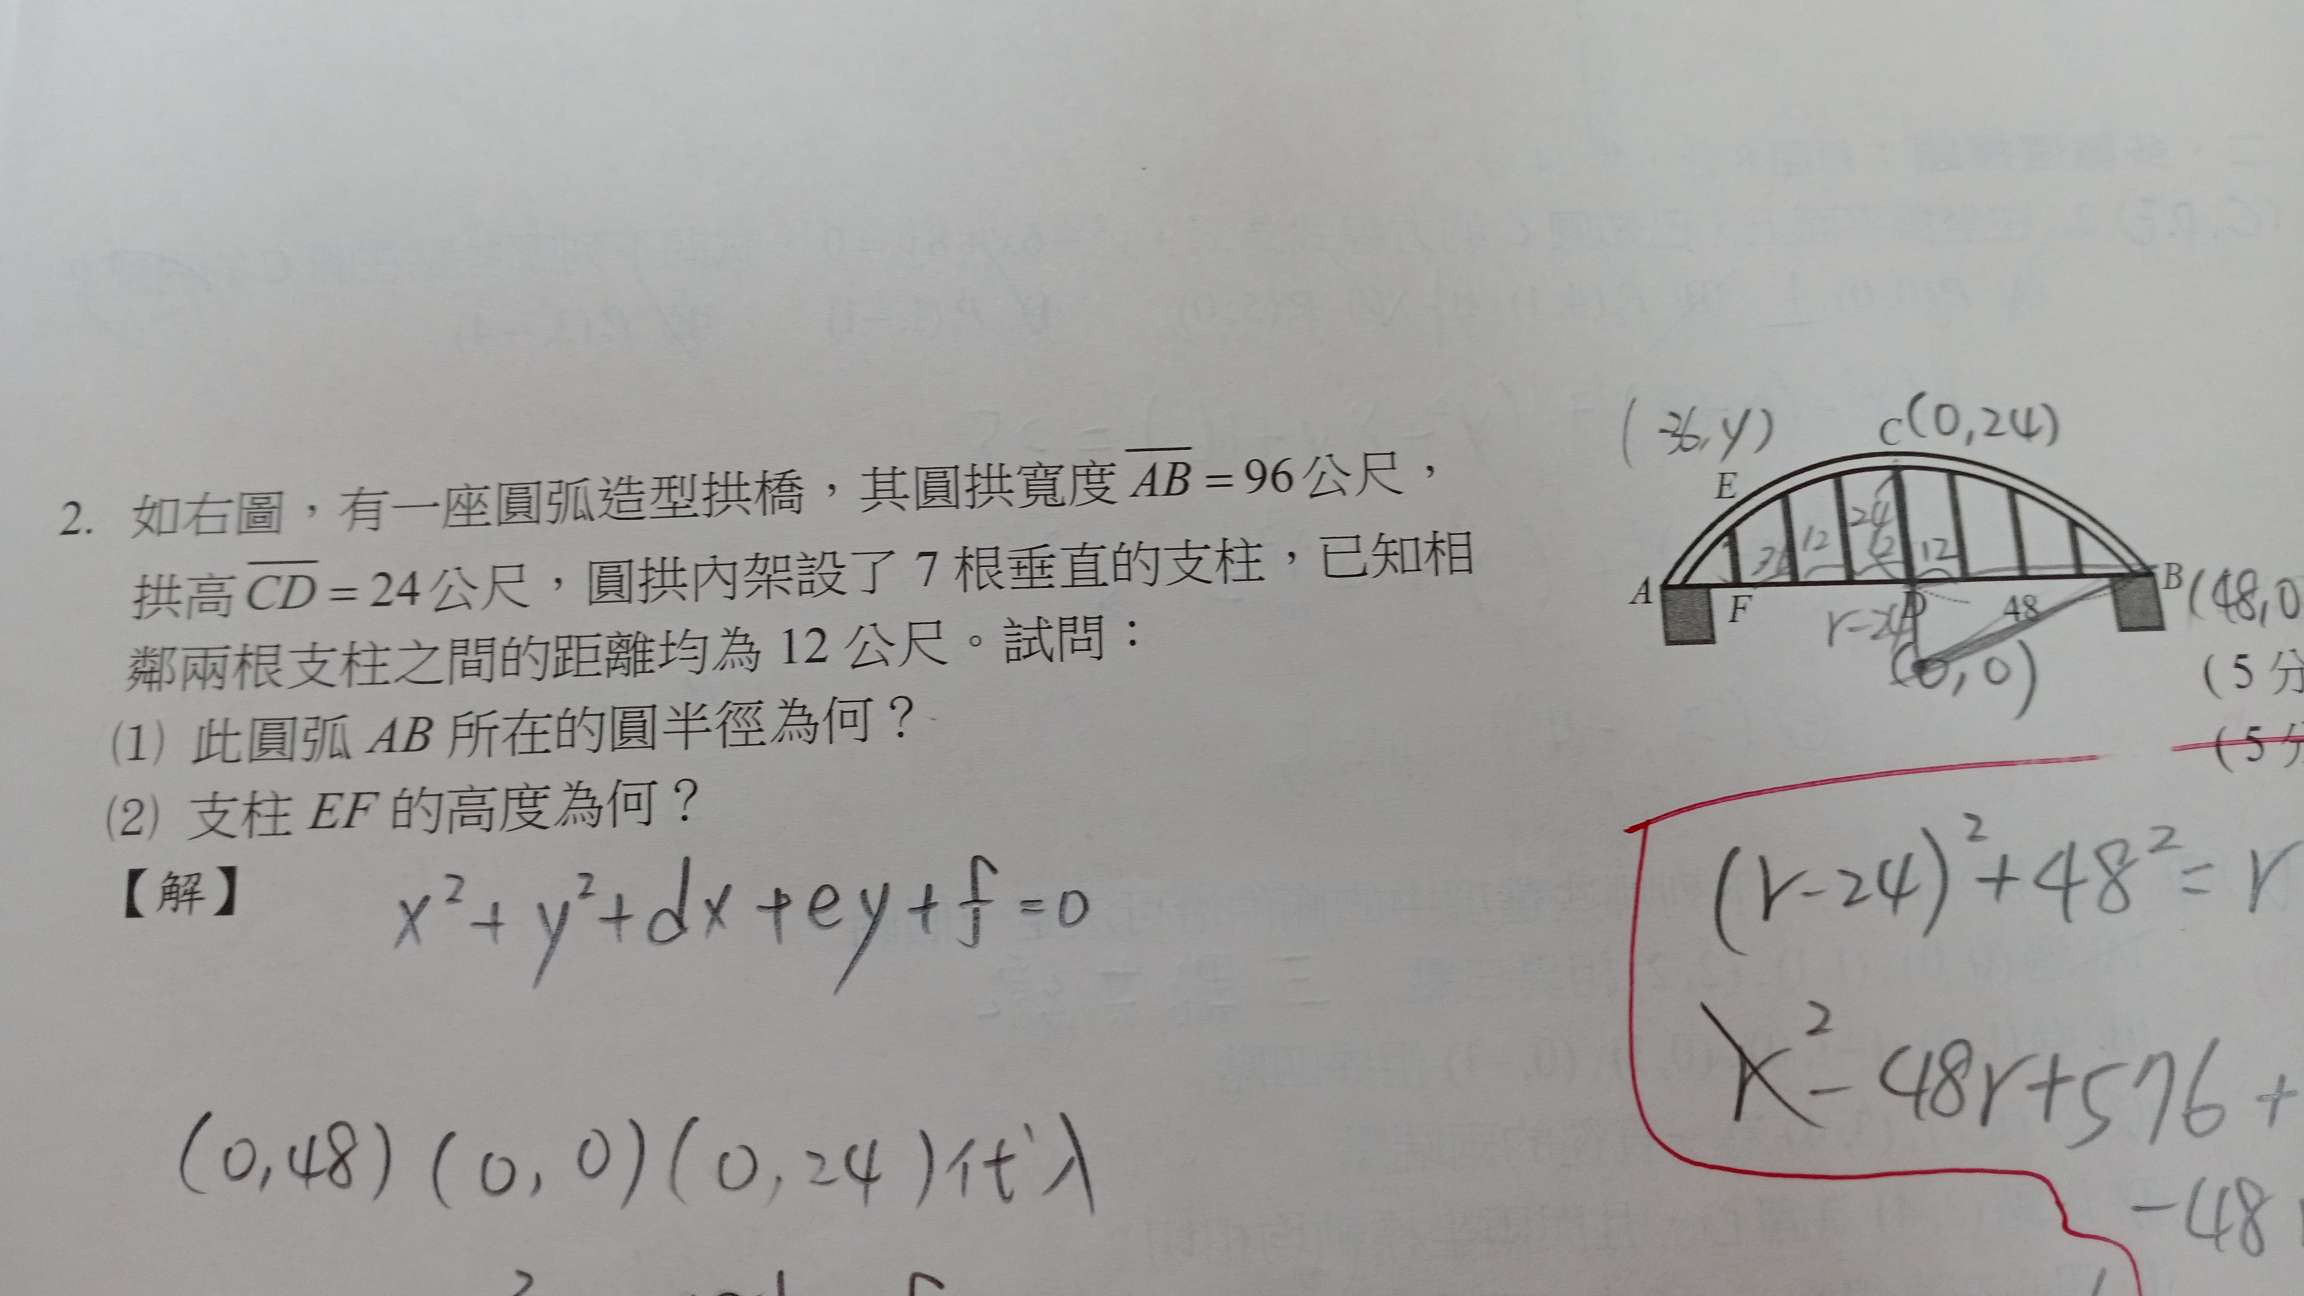 2. 如右圖，有一座圓弧造型拱橋，其圓拱寬度 AB = 96公尺，
拱高 CD = 24公尺，圓拱內架設了 7 根垂直的支柱，已知相
鄰兩根支柱之間的距離均為 12 公尺。試問：
(1) 此圓弧 AB 所在的圓半徑為何？
(2) 支柱 EF 的高度為何？
【解】
x²+y²+dx+ey+f=0
(0,48)(0,0)(0,24)代入
(-36,y)
C(0,24)
E
24
12
12
12
A
F
D
48
B(48,0
r-24
(0,0)
(5分
(5分
(r-24)²+48²=r
r²-48r+576+
-48